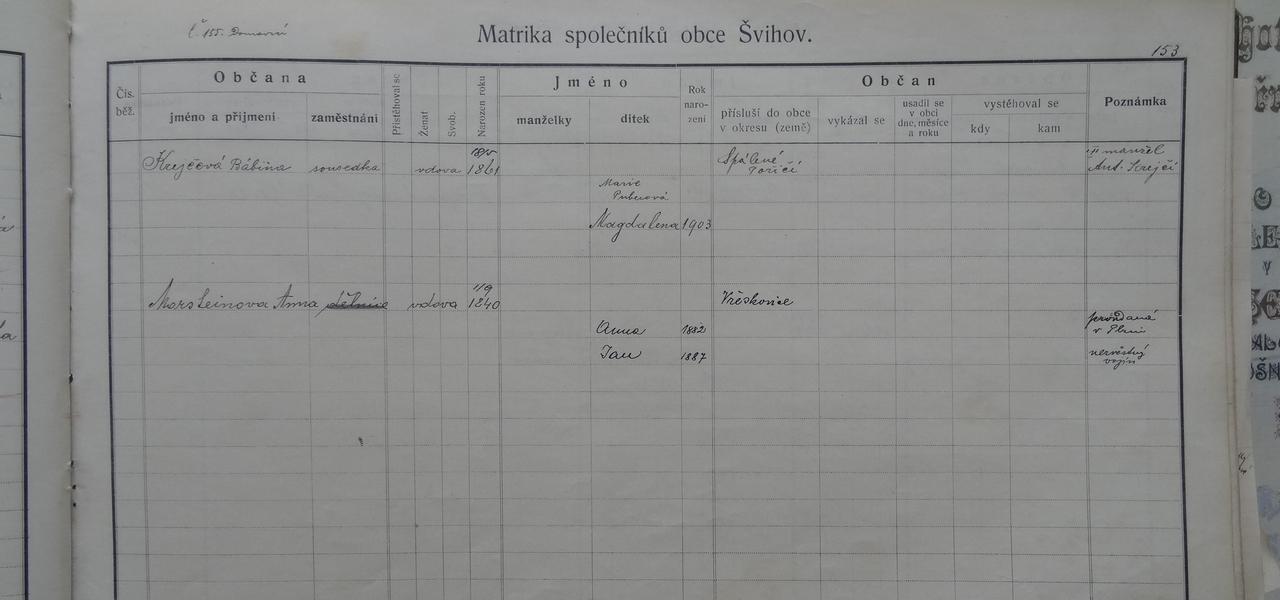 č. 155. Domovní
Matrika společníků obce Švihov.
153
Čís. běž.
Občana
jméno a příjmení
zaměstnání
Přistěhoval se
Ženat
Svob.
Narozen roku
Jméno
manželky
dítek
Rok naro- zení
Občan
přísluší do obce v okresu (země)
vykázal se
usadil se v obci dne, měsíce a roku
vystěhoval se
kdy
kam
Poznámka
Krejčová Bábina sousedka vdova 1861 Spálené Poříčí manžel
Ant. Krejčí
Marie
Magdalena 1903
11/9
Marsteinova Anna dělnice vdova 1840 Vřeskovice
Anna 1882 provdaná
v Plzni
Jan 1887 nezvěstný
vojín